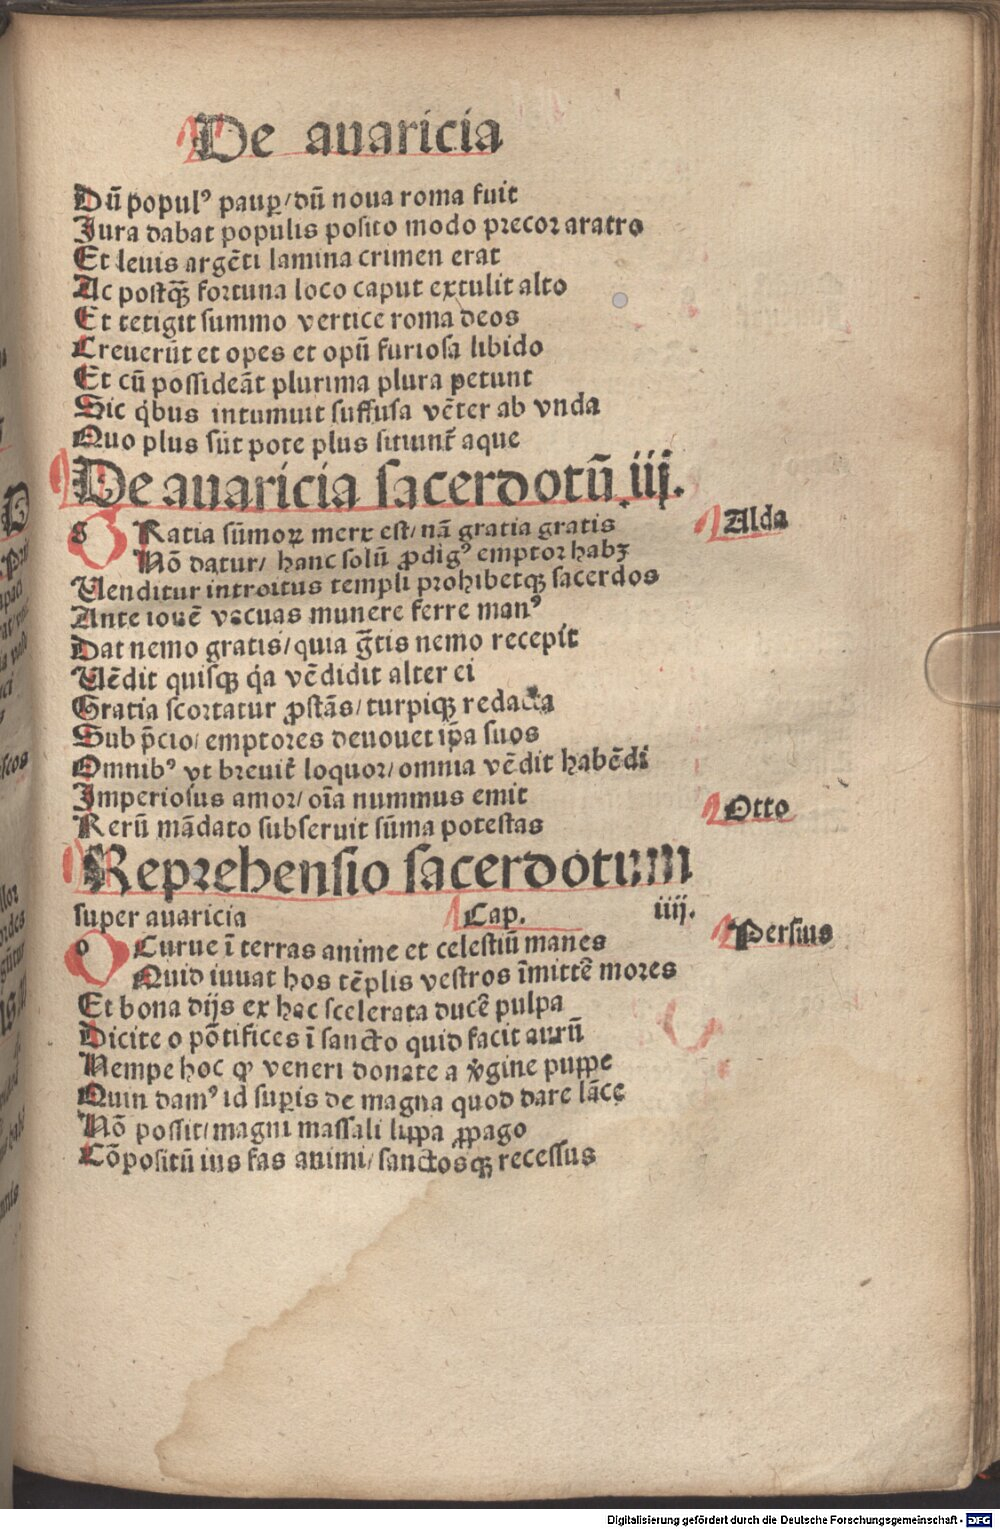 De avaricia
Dū popul⁹ paup̱/dū noua roma fuit
Iura dabat populis posito modo precor aratro
Et leuis argēti lamina crimen erat
Ac postq̄ꝫ fortuna loco caput extulit alto
Et tetigit summo vertice roma deos
Creuerūt et opes et opū furiosa libido
Et cū possideāt plurima plura petunt
Sic q̇bus intumuit suffusa vēter ab vnda
Quo plus sūt pote plus sitiunt᷑ aque
De auaricia sacerdotū iij.
g Ratia sūmoꝝ merx est/nā gratia gratis
Nō datur/ hanc solū ꝓdig⁹ emptor habꝫ
Uenditur introitus templi prohibetqꝫ sacerdos
Ante iouē vacuas munere ferre man⁹
Dat nemo gratis/quia gr̄tis nemo recepit
Uēdit quisqꝫ q̇a vēdidit alter ei
Gratia scortatur ꝓstās/turpiqꝫ redacta
Sub p̄cio/emptores deuouet ip̄a suos
Omnib⁹ vt breuit᷑ loquor/omnia vēdit habēdi
Imperiosus amor/oīa nummus emit
Rerū mādato subseruit sūma potestas
Reprehensio sacerdotum
super auaricia Cap. iiij.
o Curue ī terras anime et celestiū manes
Quid iuuat hos tēplis vestros īmittē mores
Et bona dijs ex hac scelerata ducē pulpa
Dicite o pōtifices ī sancto quid facit aurū
Nempe hoc qd̛ veneri donate a v̇gine puppe
Quin dam⁹ id suꝑis de magna quod dare lāce
Nō possit/magni massali liꝑpa ꝓpago
Cōpositū ius fas animi/sanctosqꝫ recessus
Alda
Otto
Persius
Digitalisierung gefördert durch die Deutsche Forschungsgemeinschaft - DFG